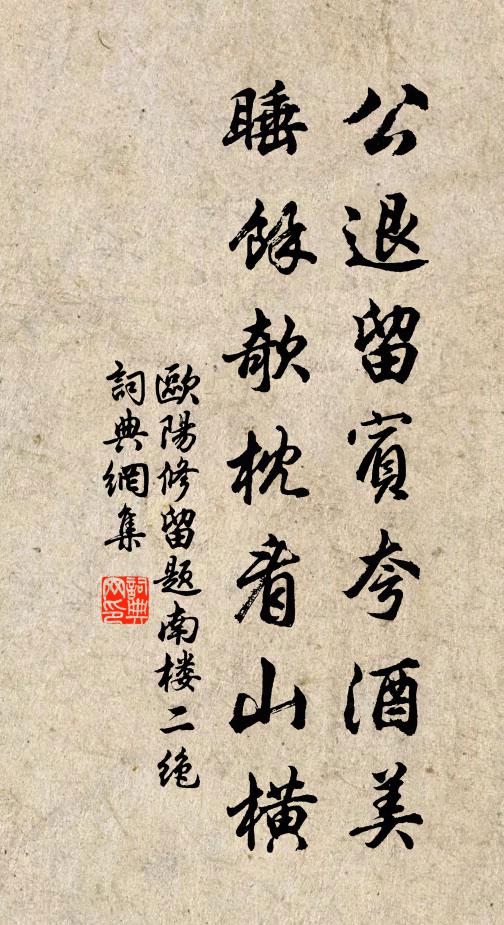 公退留賓夸酒美
睡餘欹枕看山橫
歐陽修留题南楼二绝
詞典網集
詞典
网印